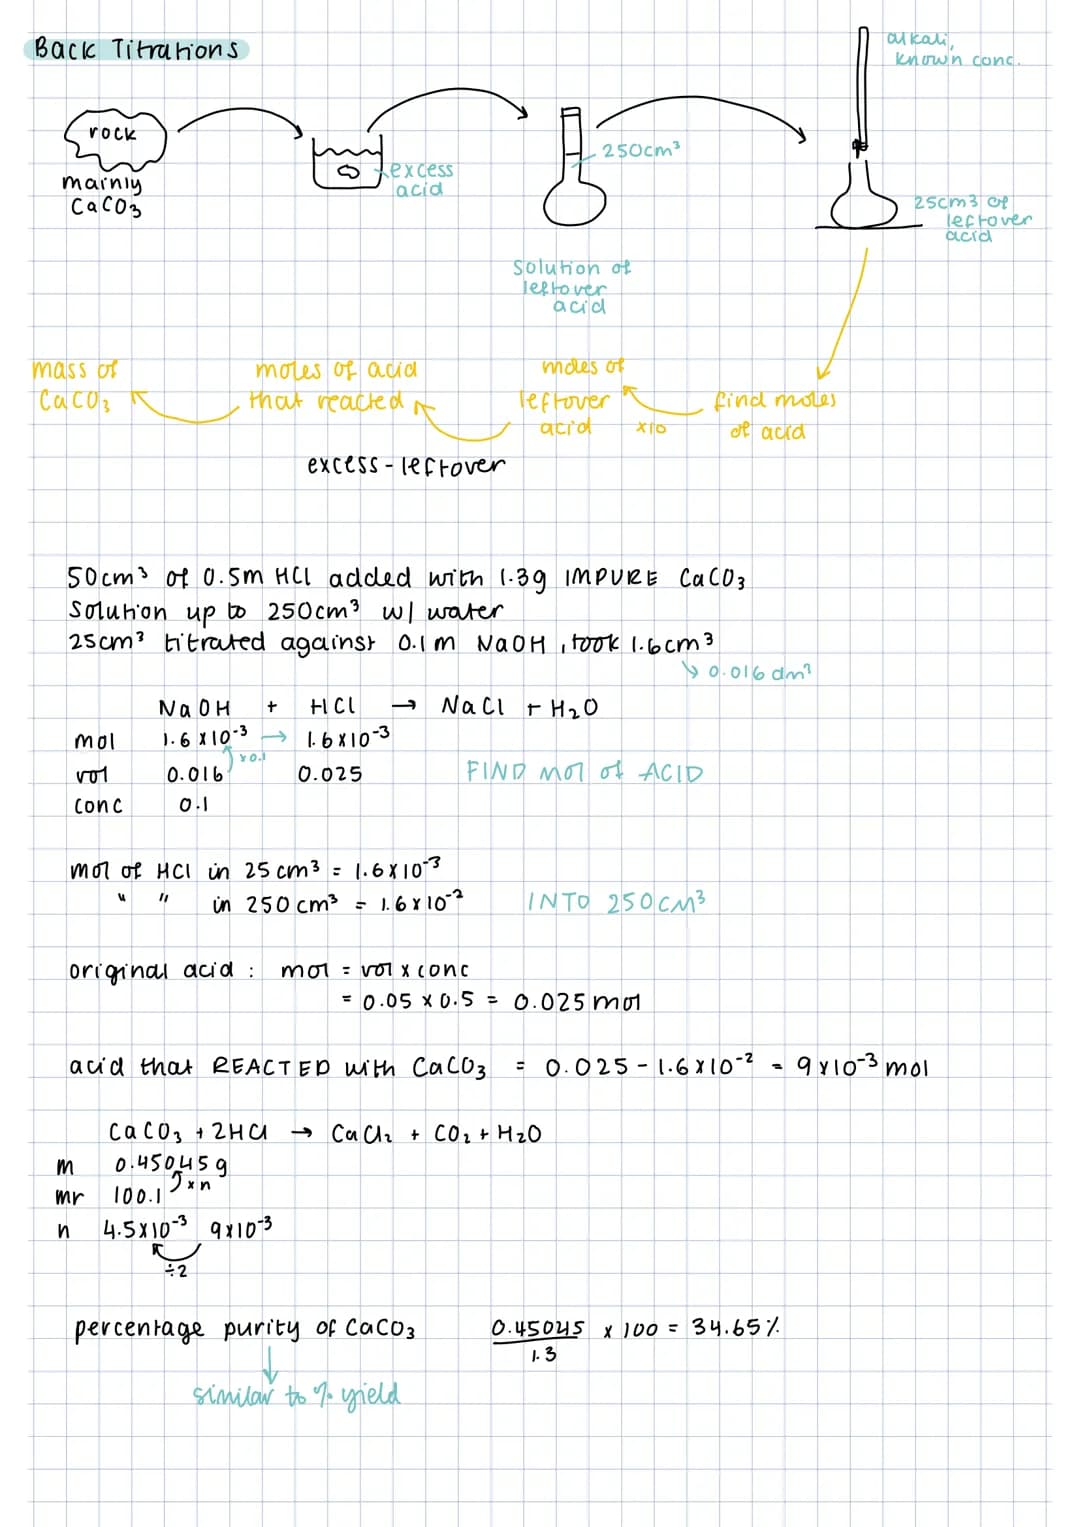 Back Titrations
alkali,
known conc.
rock
mainly
CaCO₃
excess
acid
250cm³
25cm3 of
leftover
acid
Solution of
leftover
acid
mass of
CaCO₃
moles of acid
that reacted
moles of
leftover
acid
x10
find moles
of acid
excess - leftover
50cm³ of 0.5m HCl added with 1.3g IMPURE CaCO₃
Solution up to 250cm³ w/ water
25cm³ titrated against 0.1m NaOH, took 1.6cm³
↳ 0.016 dm³
NaOH + HCl → NaCl + H₂O
mol 1.6 x10⁻³ → 1.6x10⁻³
x0.1
vol 0.016 0.025 FIND mol of ACID
conc 0.1
mol of HCl in 25cm³ = 1.6x10⁻³
" " in 250cm³ = 1.6x10⁻² INTO 250CM³
original acid : mol = vol x conc
= 0.05 x 0.5 = 0.025 mol
acid that REACTED with CaCO₃ = 0.025 - 1.6x10⁻² = 9x10⁻³ mol
CaCO₃ + 2HCl → CaCl₂ + CO₂ + H₂O
m 0.45045g
mr 100.1 xn
n 4.5x10⁻³ 9x10⁻³
÷2
percentage purity of CaCO₃ 0.45045 x 100 = 34.65%
1.3
↓
similar to % yield